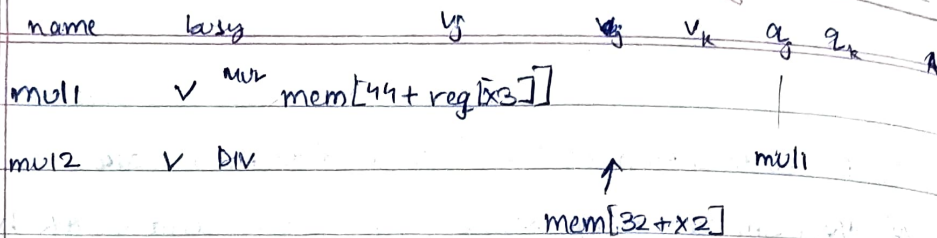 name busy Vj Vk qj qk A
mul1 v MUL mem[44+ reg[x3]]
mul2 v DIV mul1
↑
mem[32+x2]